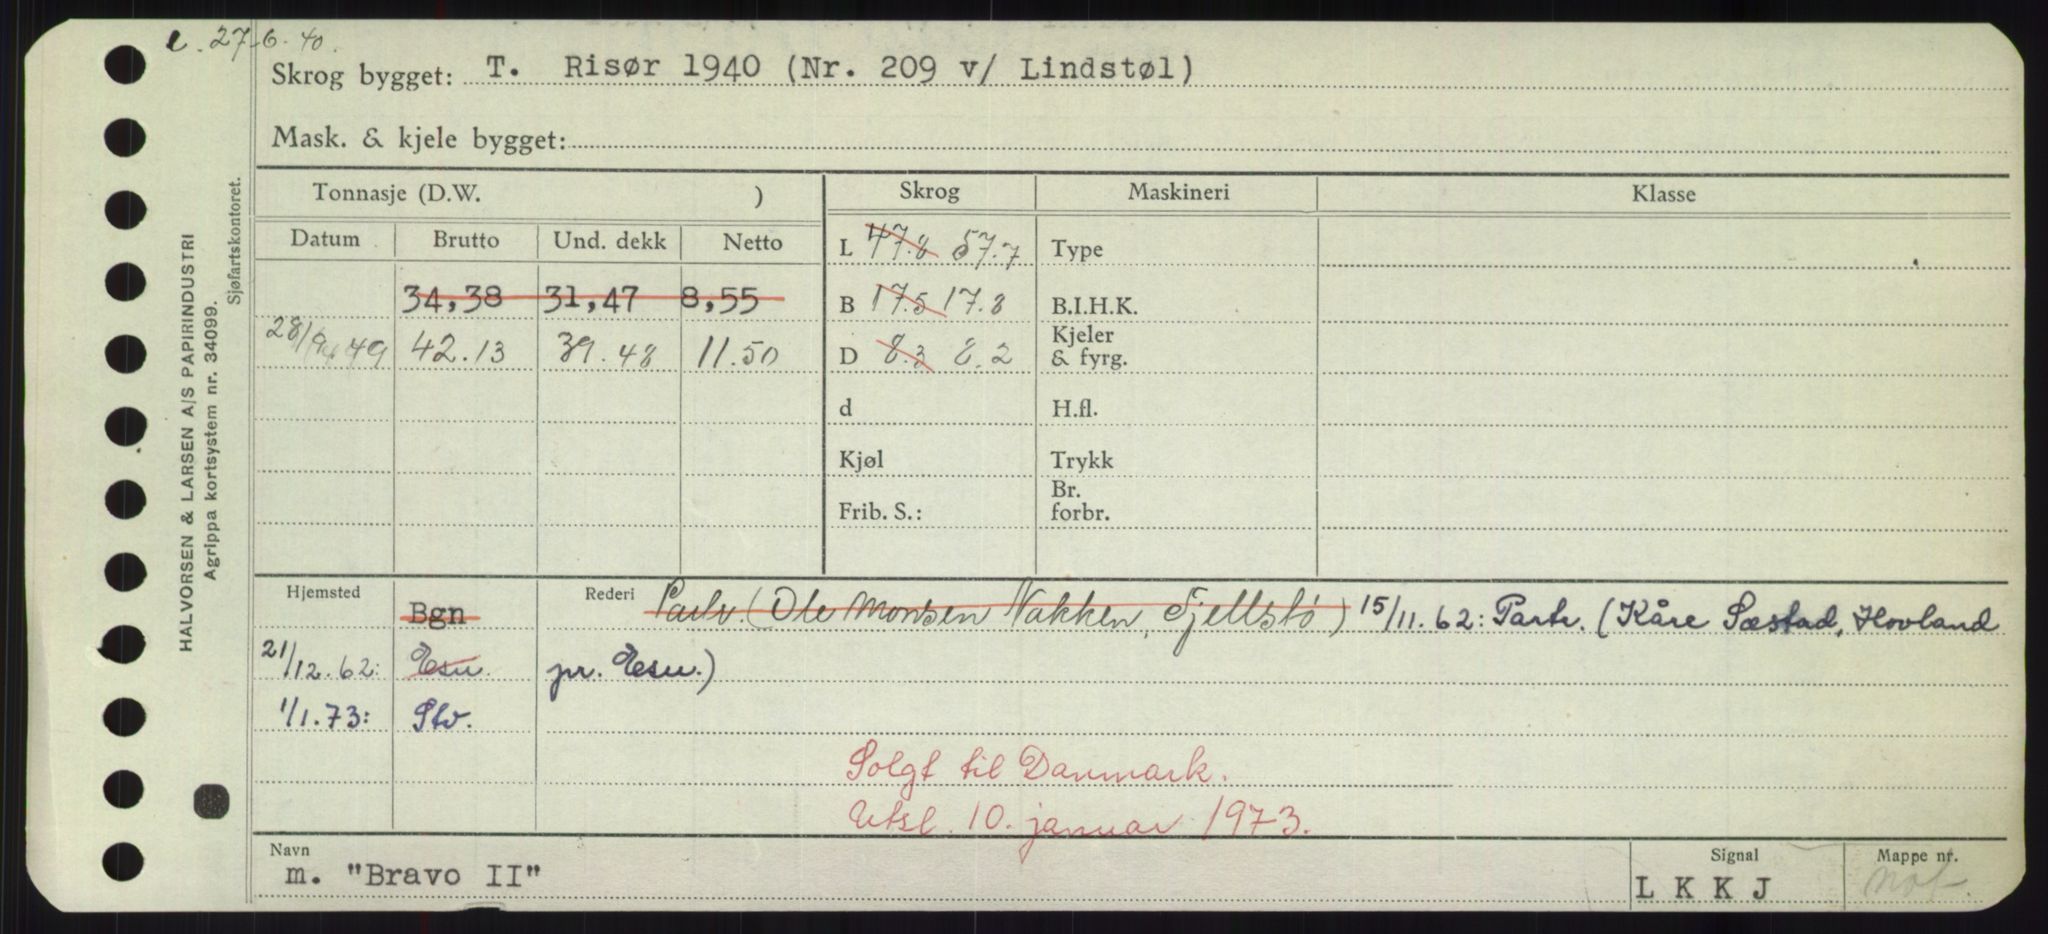 e. 27-6-40.
Skrog bygget: T. Risør 1940 (Nr. 209 v/ Lindstøl)
Mask. & kjele bygget:
HALVORSEN & LARSEN A/S PAPIRINDUSTRI
Agrippa kortsystem nr. 34099.
Sjøfartskontoret.
Tonnasje (D.W. ) Skrog Maskineri Klasse
Datum Brutto Und. dekk Netto
L 47.8 57.7 Type
34,38 31,47 8,55 B 17.5 17.8 B.I.H.K.
28/9 49 42.13 39.48 11.50 D 8.3 8.2 Kjeler & fyrg.
d H.fl.
Kjøl Trykk
Frib. S.: Br. forbr.
Hjemsted Bgn Rederi Partr. (Ole Monsen Nakken, Fjellstø) 15/11.62: Partr. (Kåre Sæstad, Hovland
21/12.62: Esu. pr. Esu.)
1/1.73: Stv.
Solgt til Danmark.
Utsl. 10. januar 1973.
Navn Signal Mappe nr.
m. "Bravo II" L K K J